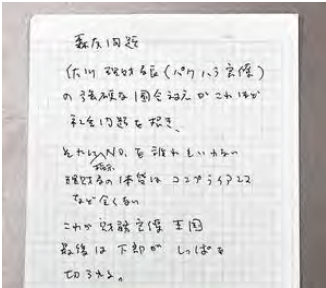 森友問題
佐川理財局長(パワハラ官僚)
の強硬な国会対応がこれほど
社会問題を招き、
それにNOを誰れもいわない
指示
理財局の体質はコンプライアンス
など全くない
これが財務官僚王国
最後は下部がしっぽを
切られる。